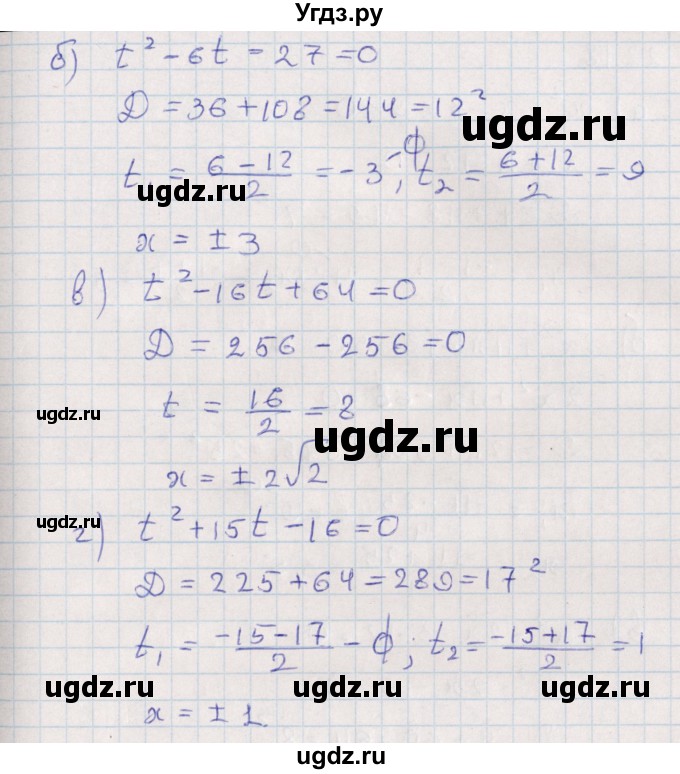 Угдз.ру
б) t² - 6t - 27 = 0
Д = 36 + 108 = 144 = 12²
ugdz.ru
t₁ = (6 - 12)/2 = -3 - ф; t₂ = (6 + 12)/2 = 9
ugdz.ru
x = ± 3
в) t² - 16t + 64 = 0
Д = 256 - 256 = 0
t = 16/2 = 8
ugdz.ru
ugdz.ru
x = ± 2√2
г) t² + 15t - 16 = 0
ugdz.ru
Д = 225 + 64 = 289 = 17²
t₁ = (-15 - 17)/2 - ф; t₂ = (-15 + 17)/2 = 1
ugdz.ru
ugdz.ru
x = ± 1
ugdz.ru
ugdz.ru